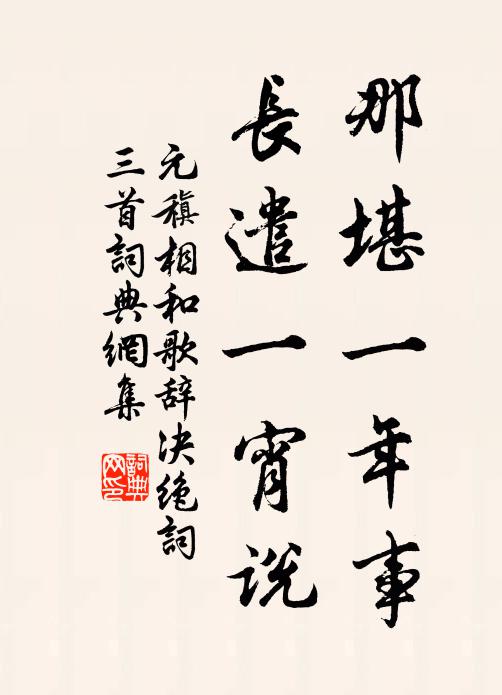 那堪一年事
長遣一宵说
元稹相和歌辞决绝詞
三首詞典網集
詞典
网印